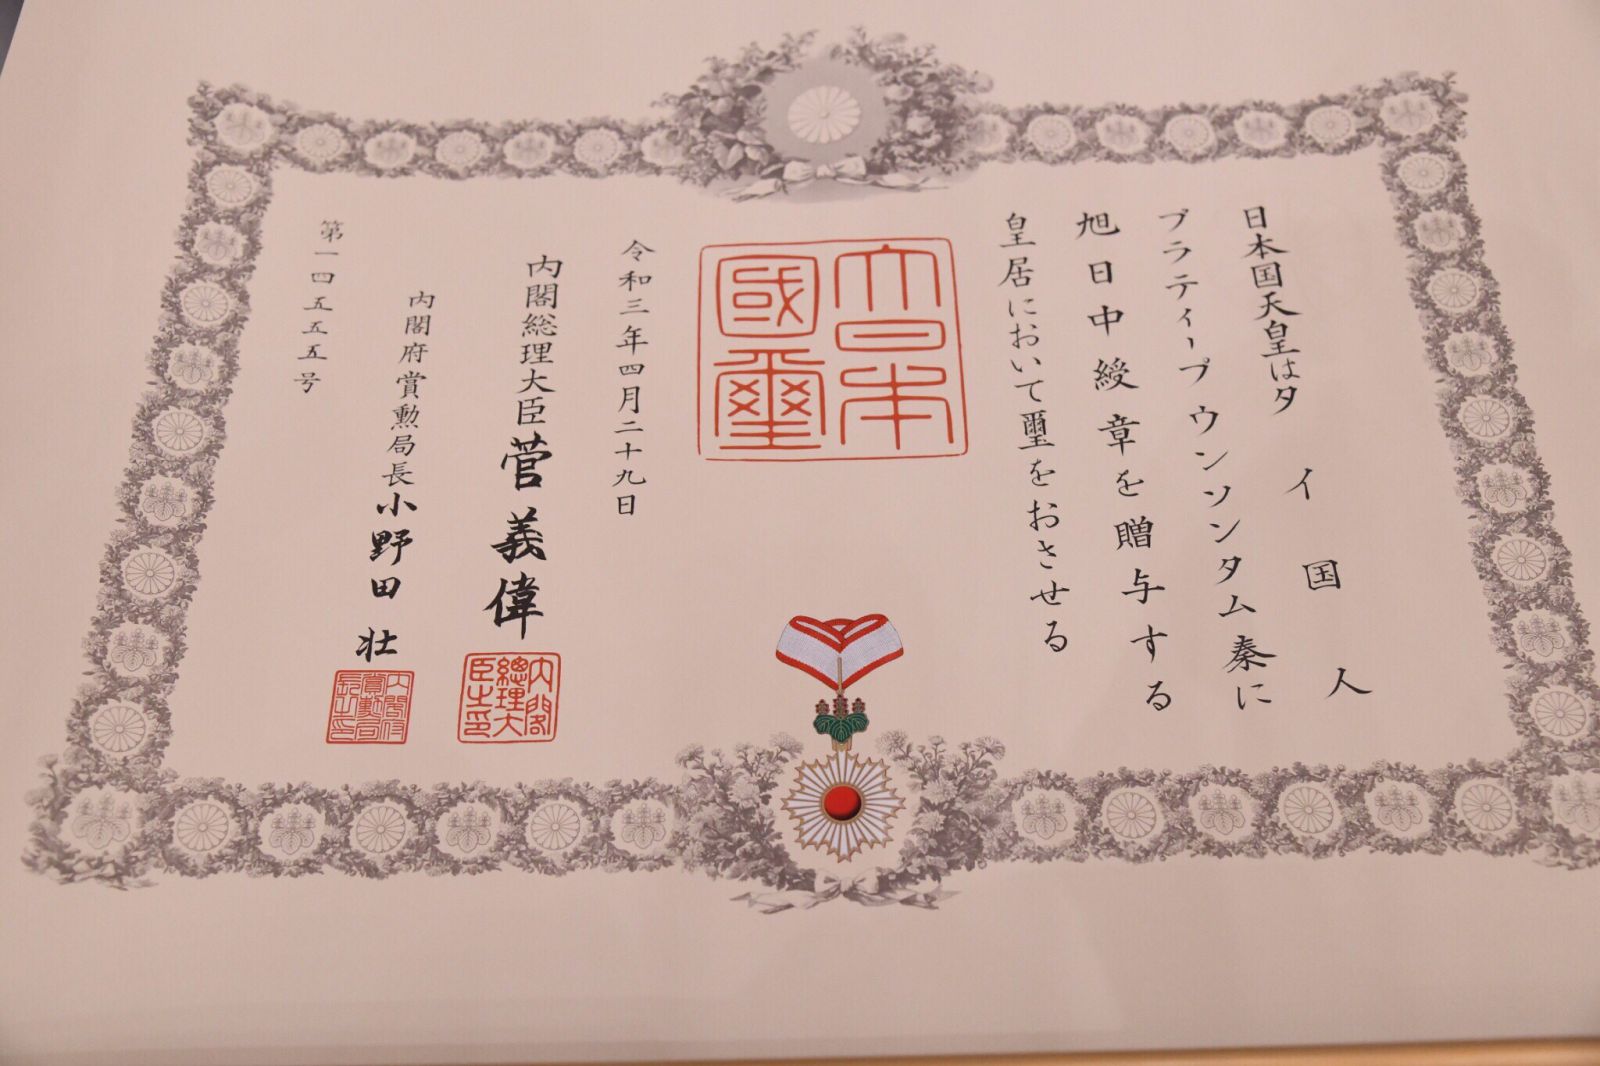 日本国天皇はタイ国人
プラティープウンソンタム秦に
旭日中綬章を贈与する
皇居において璽をおさせる
大日本
國璽
令和三年四月二十九日
内閣総理大臣菅義偉
内閣總理大臣之印
内閣府賞勲局長小野田壮
内閣府賞勲局長之印
第一四五五五号